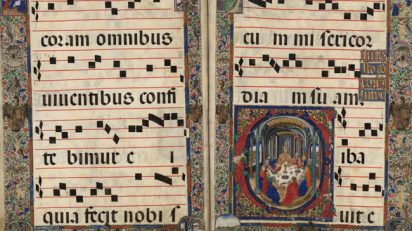 coram omnibus
uiuentibus confi
te bimur e i
quia fecit nobi s
cu m mi sericor
dia m su am.
C iba
uit e